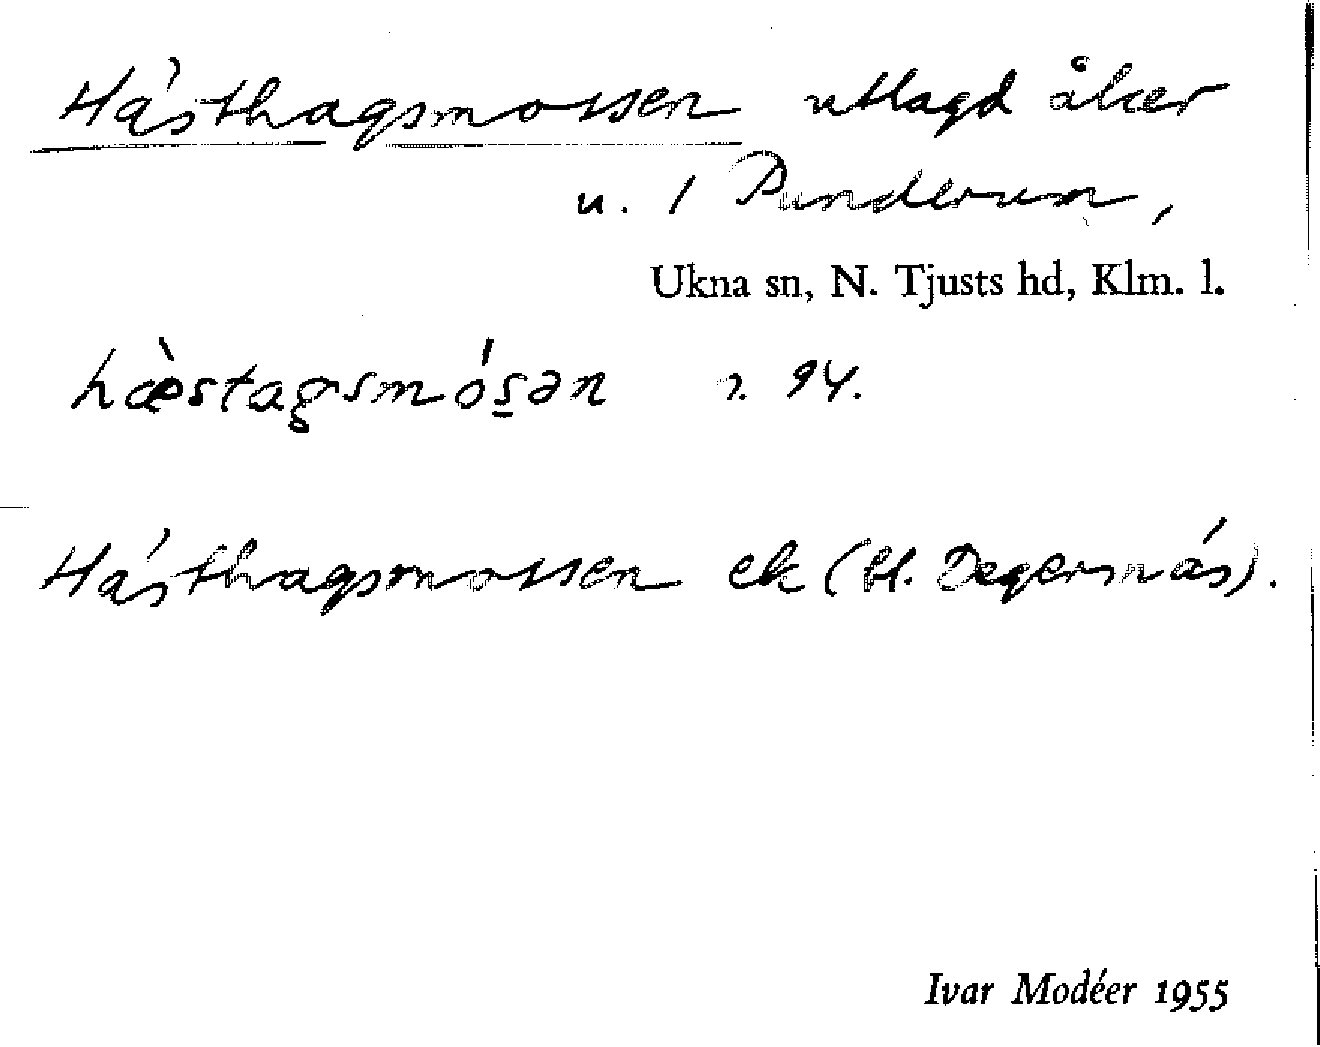 Hästhagsmossen utlagd åker
u. 1 Punderum,
Ukna sn, N. Tjusts hd, Klm. l.
hæ̀stagsmósən 2. 94.
Hästhagsmossen ek (bl. Degernäs).
Ivar Modéer 1955